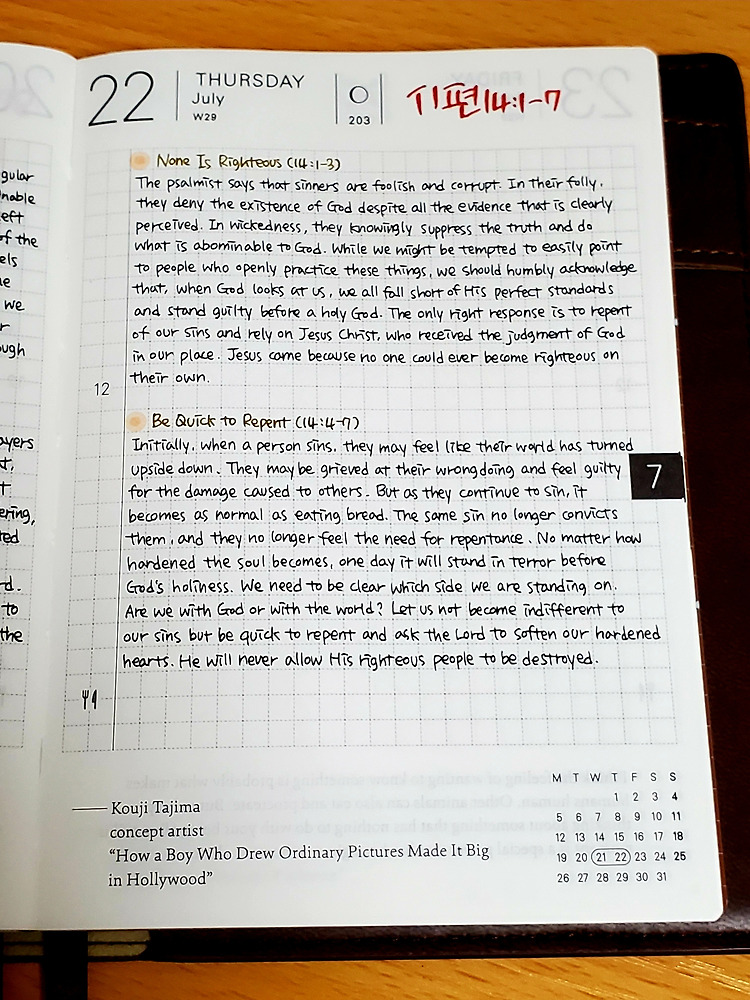 gular
nable
eft
of the
els
we
r
ough
ayers
t,
t
ering,
ted
d.
to
the
22
THURSDAY
July
W29
203
시편14:1-7
None Is Righteous (14:1-3)
The psalmist says that sinners are foolish and corrupt. In their folly,
they deny the existence of God despite all the evidence that is clearly
perceived. In wickedness, they knowingly suppress the truth and do
what is abominable to God. While we might be tempted to easily point
to people who openly practice these things, we should humbly acknowledge
that, when God looks at us, we all fall short of His perfect standards
and stand guilty before a holy God. The only right response is to repent
of our sins and rely on Jesus Christ, who received the judgment of God
in our place. Jesus came because no one could ever become righteous on
their own.
12
Be Quick to Repent (14:4-7)
Initially, when a person sins, they may feel like their world has turned
upside down. They may be grieved at their wrongdoing and feel guilty
for the damage caused to others. But as they continue to sin, it
becomes as normal as eating bread. The same sin no longer convicts
them, and they no longer feel the need for repentance. No matter how
hardened the soul becomes, one day it will stand in terror before
God's holiness. We need to be clear which side we are standing on.
Are we with God or with the world? Let us not become indifferent to
our sins but be quick to repent and ask the Lord to soften our hardened
hearts. He will never allow His righteous people to be destroyed.
7
Kouji Tajima
concept artist
“How a Boy Who Drew Ordinary Pictures Made It Big
in Hollywood”
M T W T F S S
1 2 3 4
5 6 7 8 9 10 11
12 13 14 15 16 17 18
19 20 21 22 23 24 25
26 27 28 29 30 31